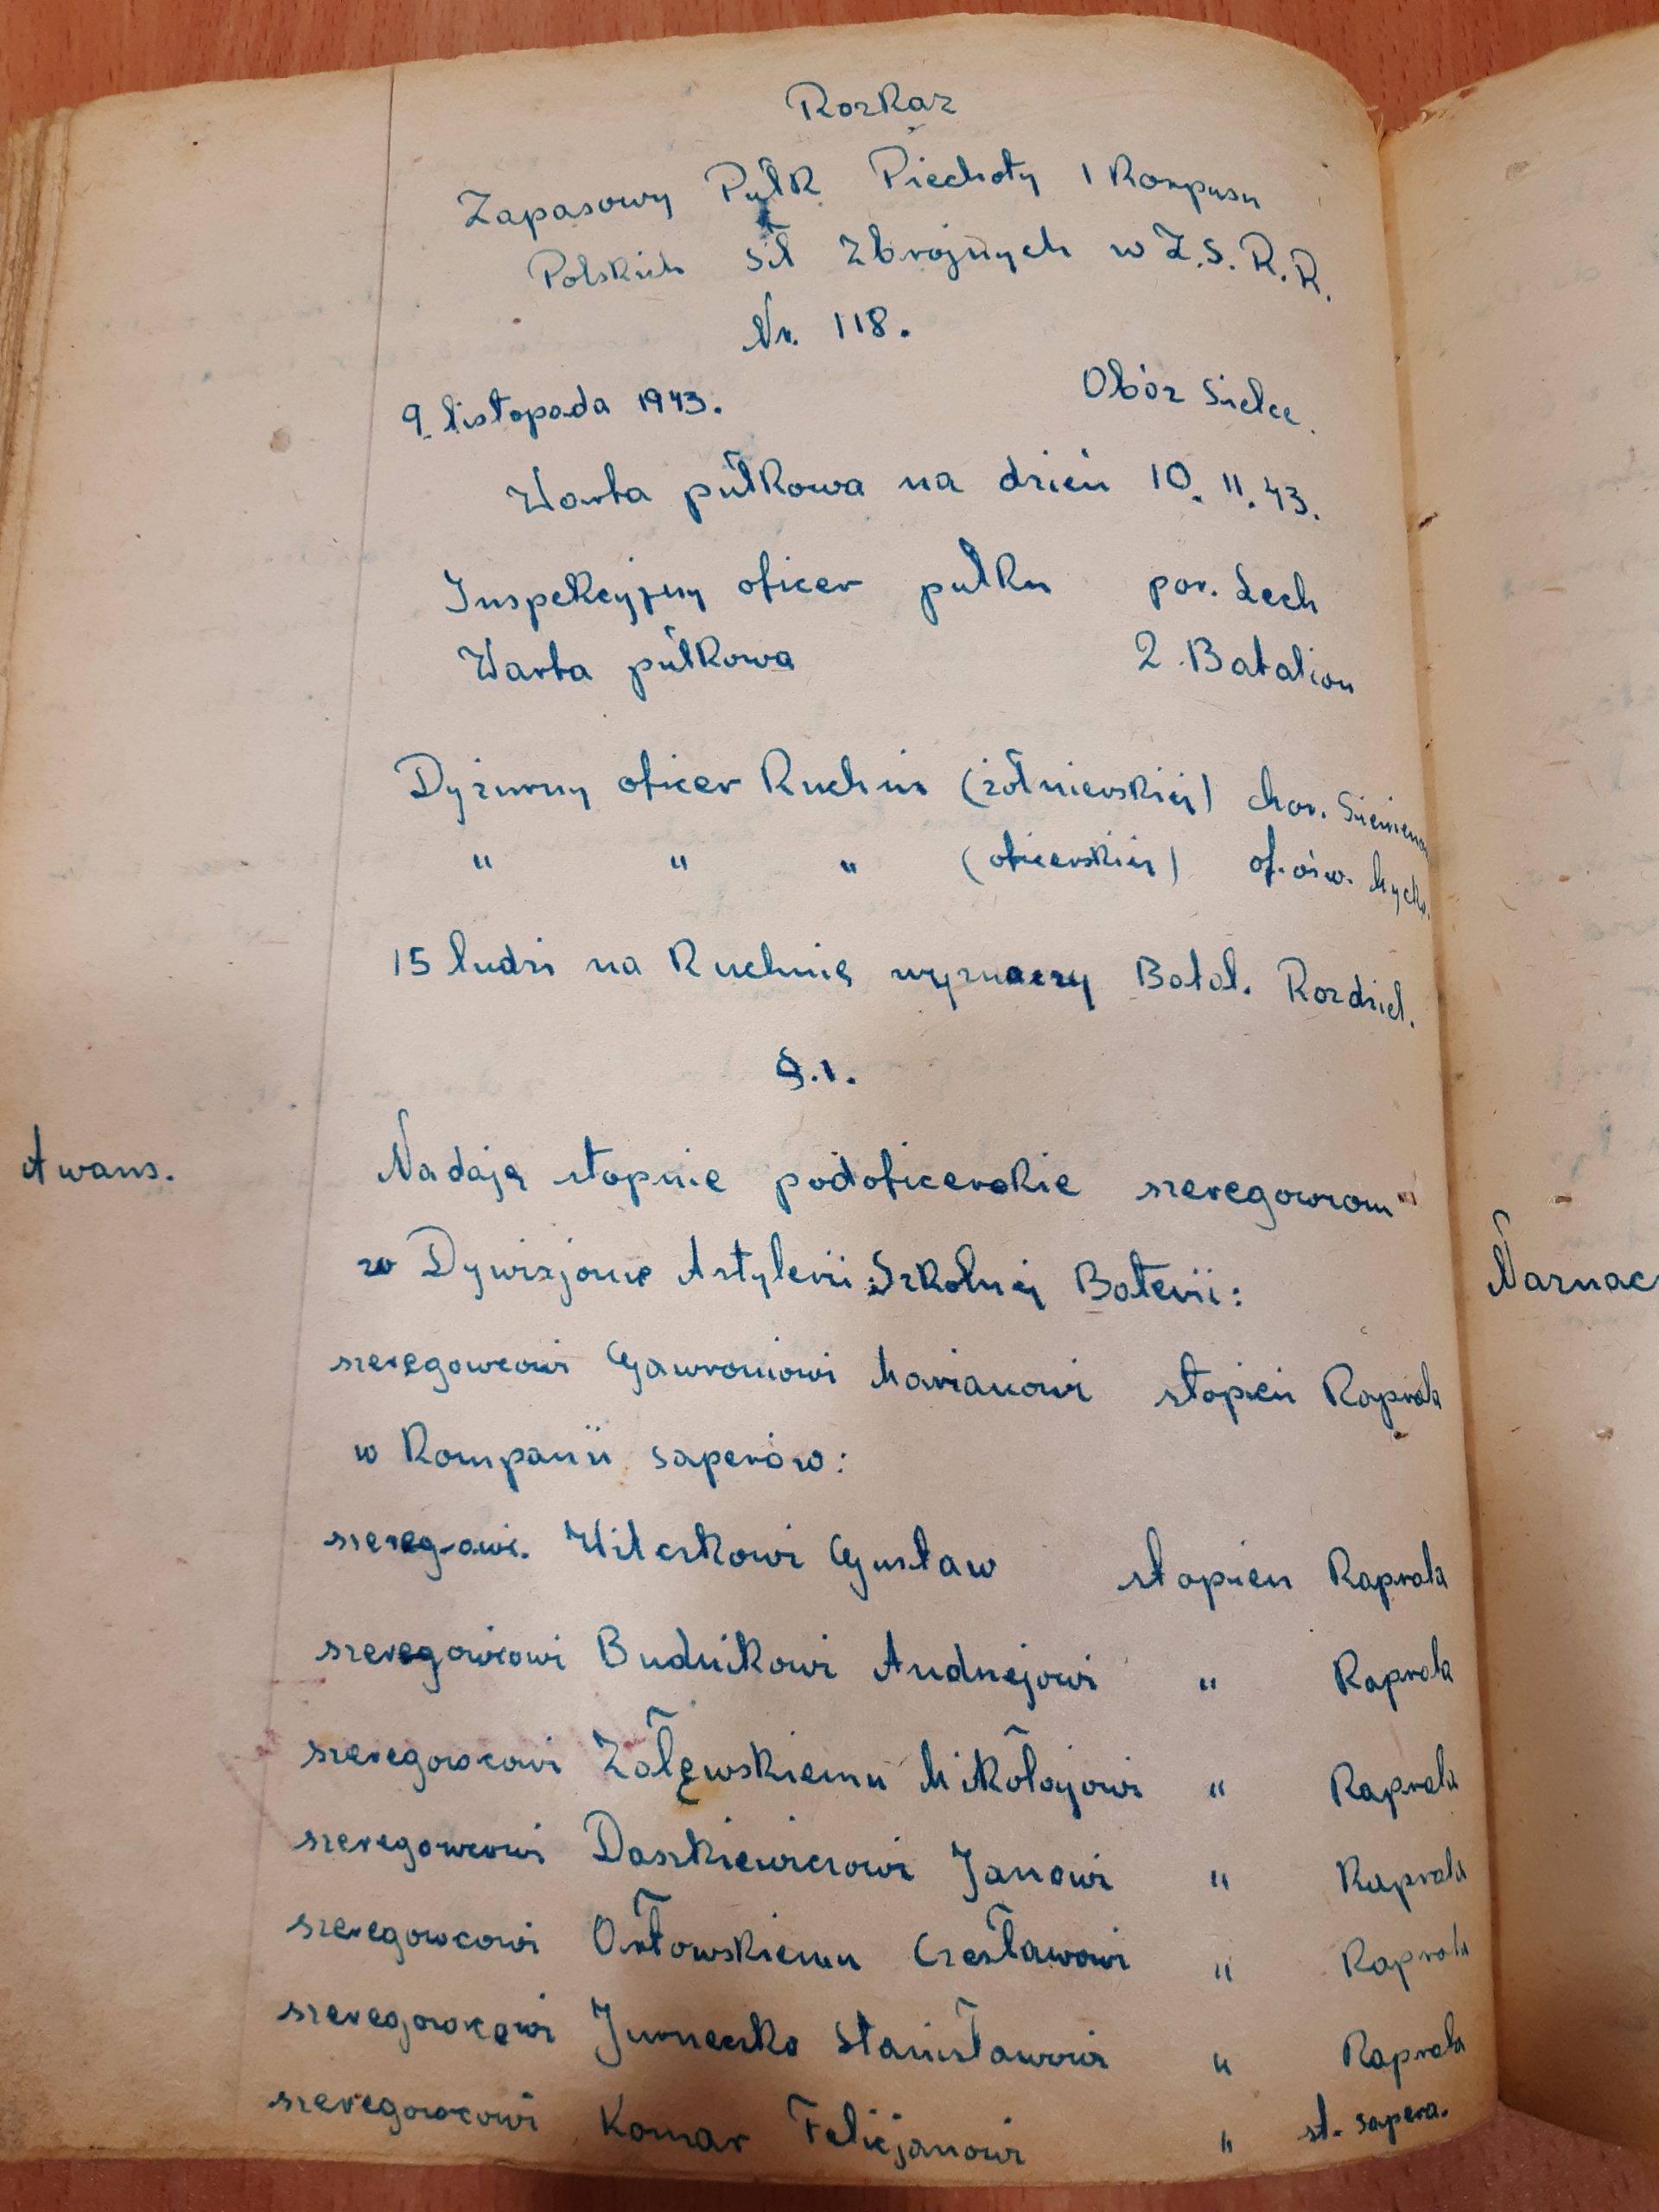 Rozkaz
Zapasowy Pułk Piechoty 1 Korpusu
Polskich Sił Zbrojnych w Z.S.R.R.
Nr. 118.
9. listopada 1943. Obóz Sielce.
Warta pułkowa na dzień 10. 11. 43.
Inspekcyjny oficer pułku por. Lech
Warta pułkowa 2 Batalion
Dyżurny oficer kuchni (żołnierskiej) chor.
" " " (oficerskiej) of. ośw.
15 ludzi na kuchnię wyznaczy Batal. Rozdziel.
§.1.
Awans.
Nadaję stopnie podoficerskie szeregowcom
w Dywizjonie Artylerii Szkolnej Baterii:
szeregowcowi Gawroniowi Marianowi stopień kaprala
w kompanii saperów:
szereg-owi. Gustaw stopien kaprala
szeregowcowi Budnikowi Andrzejowi " kaprala
szeregowcowi Zalewskiemu Mikołajowi " kaprala
szeregowcowi Daszkiewiczowi Janowi " kaprala
szeregowcowi Orłowskiemu Czesławowi " kaprala
szeregowcowi Stanisławowi " kaprala
szeregowcowi Komar Felicjanowi " st. sapera.